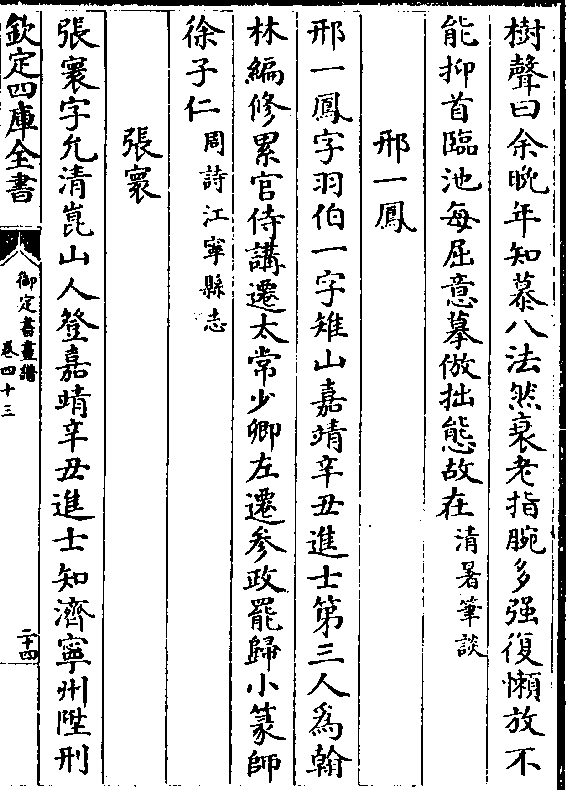 樹聲曰余晩年知慕八法然衰老指腕多强復懶放不
能抑首臨池每屈意摹倣拙態故在清暑筆談
邢一鳳
邢一鳳字羽伯一字雉山嘉靖辛丑進士第三人爲翰
林編修累官侍講遷太常少卿左遷參政罷歸小篆師
徐子仁周詩江寧縣志
張寰
張寰字允清崑山人登嘉靖辛丑進士知濟寧州陞刑
欽定四庫全書
御定書畫譜
卷四十三
二十四